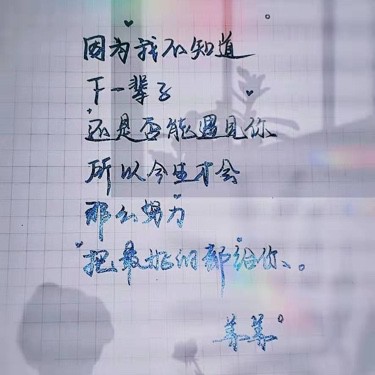 因为我不知道
下一辈子
还是否能遇见你
所以今生才会
那么努力
把最好的都给你。